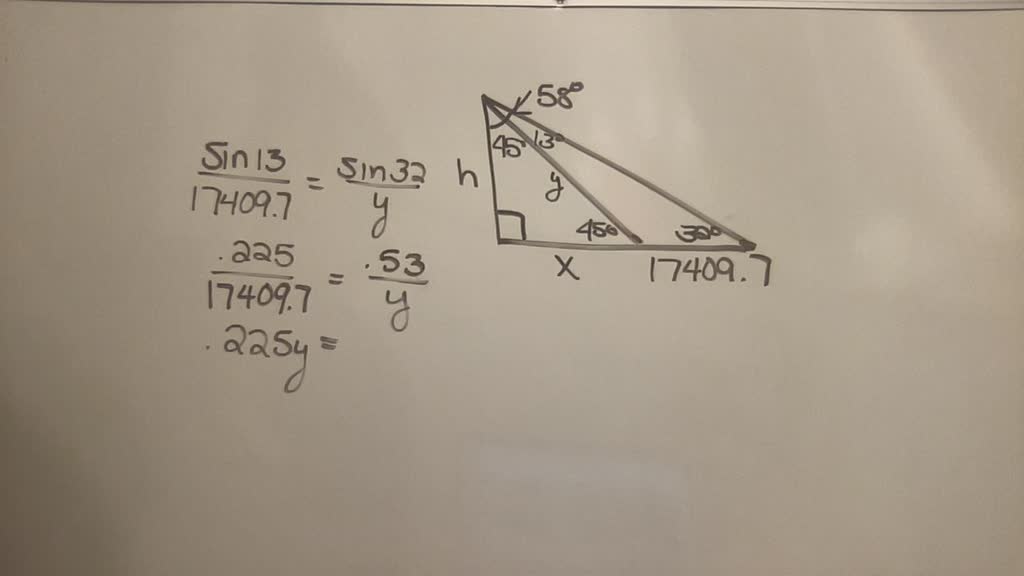 Sin 13 / 17409.7 = Sin 32 / y
.225 / 17409.7 = .53 / y
.225y =
58°
45° 13°
h
y
45° 32°
x 17409.7